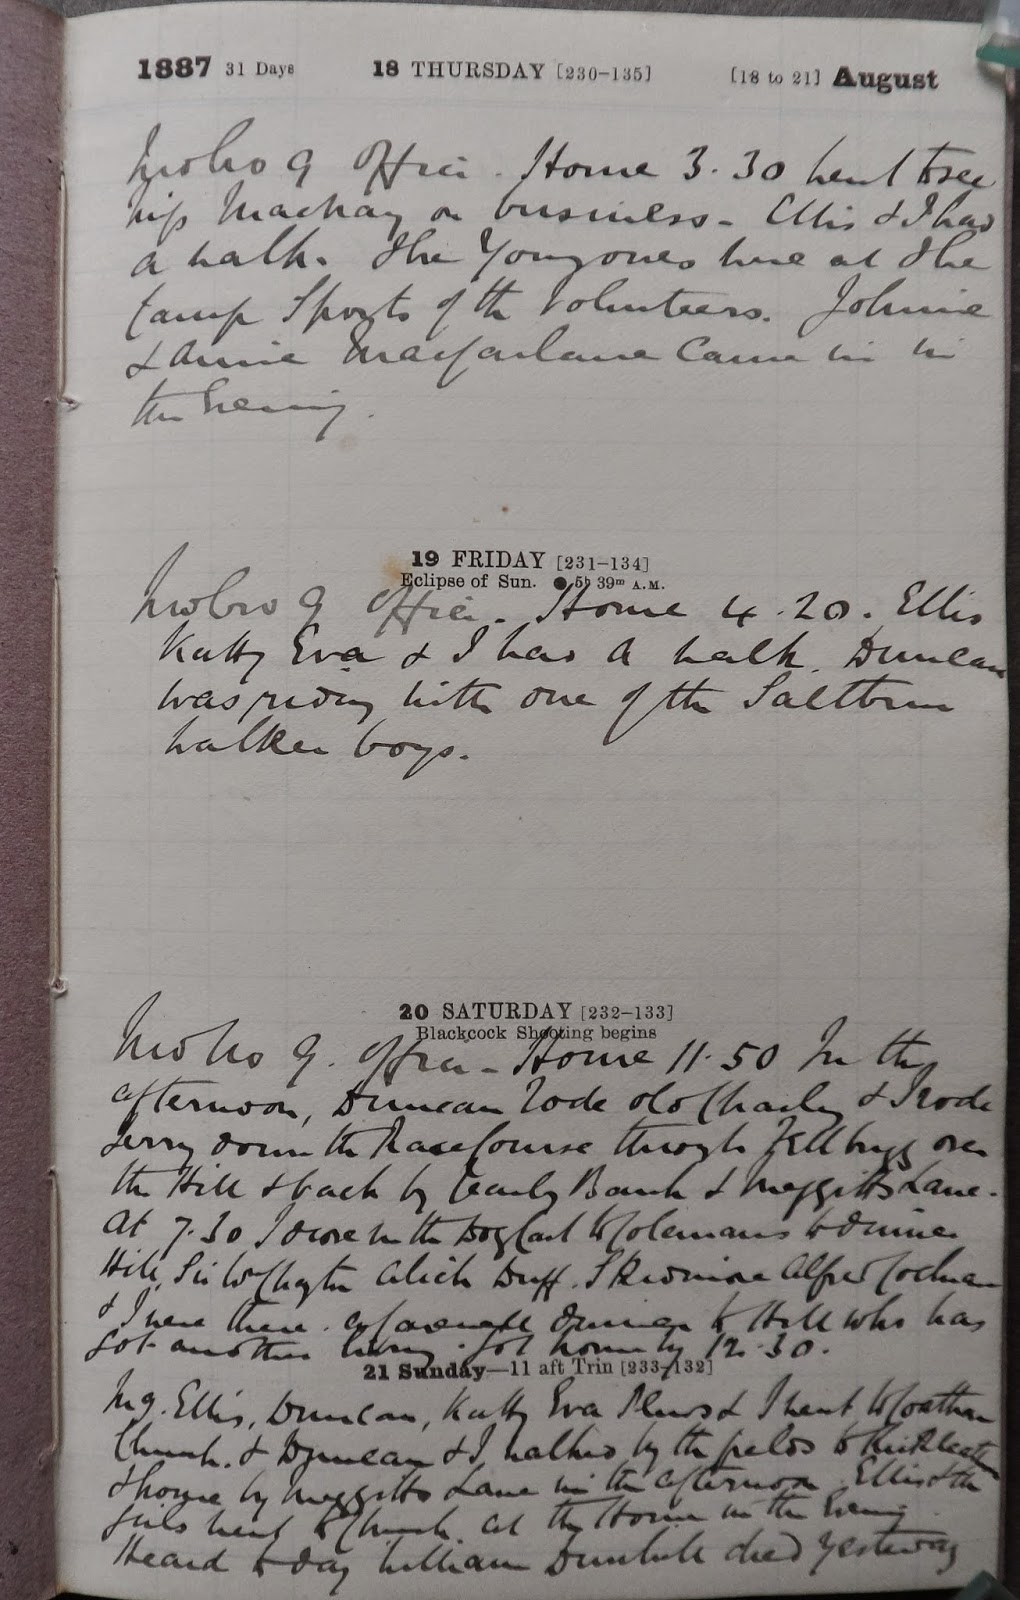 1887 31 Days 18 THURSDAY [230-135] [18 to 21] August
9 Office. Home 3.30 Went to see
Mackay on business - Ellis & I had
a walk. The Young ones were at the
Camp Sports of the Volunteers. Johnnie
& Annie Macfarlane came in in
the Evening.
19 FRIDAY [231-134]
Eclipse of Sun. ● 5h 39m A.M.
9 Office. Home 4.20. Ellis
Katty Eva & I had a walk. Duncan
was riding with one of the Saltburn
Walker boys.
20 SATURDAY [232-133]
Blackcock Shooting begins
9. Office - Home 11.50 In the
afternoon, Duncan rode old Charley & I rode
Jerry down the Race Course through over
the Hill & back by Bank & Meggitts Lane.
At 7.30 I drove in the Dog Cart to Colemans to dinner
Hill, Sir Wm Chaytor Duff. Skidmore Alfred Cochrane
& I were there. a farewell dinner to Hill who has
got another living. Got home by 12.30.
21 Sunday—11 aft Trin [233-132]
Ellis, Duncan, Katty Eva & I went to Coatham
Church. & Duncan & I walked by the fields to Kirkleatham
& home by Meggitts Lane in the afternoon. Ellis & the
Girls went to Church. at the Home in the Evening.
Heard to day William Dunhill died Yesterday